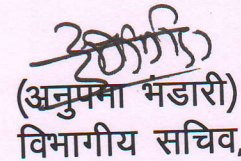 (अनुपमा भंडारी)
विभागीय सचिव,